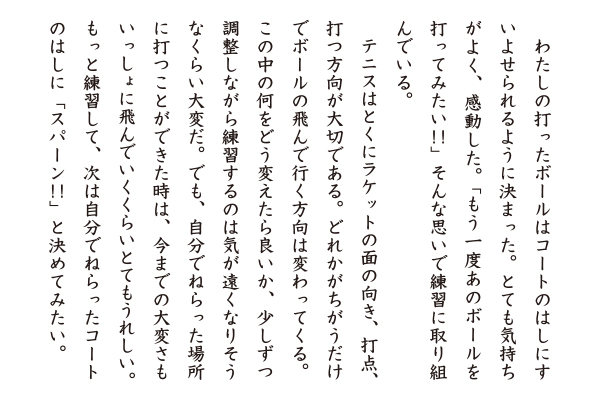 わたしの打ったボールはコートのはしにす
いよせられるように決まった。とても気持ち
がよく、感動した。「もう一度あのボールを
打ってみたい!!」そんな思いで練習に取り組
んでいる。
　テニスはとくにラケットの面の向き、打点、
打つ方向が大切である。どれかがちがうだけ
でボールの飛んで行く方向は変わってくる。
この中の何をどう変えたら良いか、少しずつ
調整しながら練習するのは気が遠くなりそう
なくらい大変だ。でも、自分でねらった場所
に打つことができた時は、今までの大変さも
いっしょに飛んでいくくらいとてもうれしい。
もっと練習して、次は自分でねらったコート
のはしに「スパーン!!」と決めてみたい。